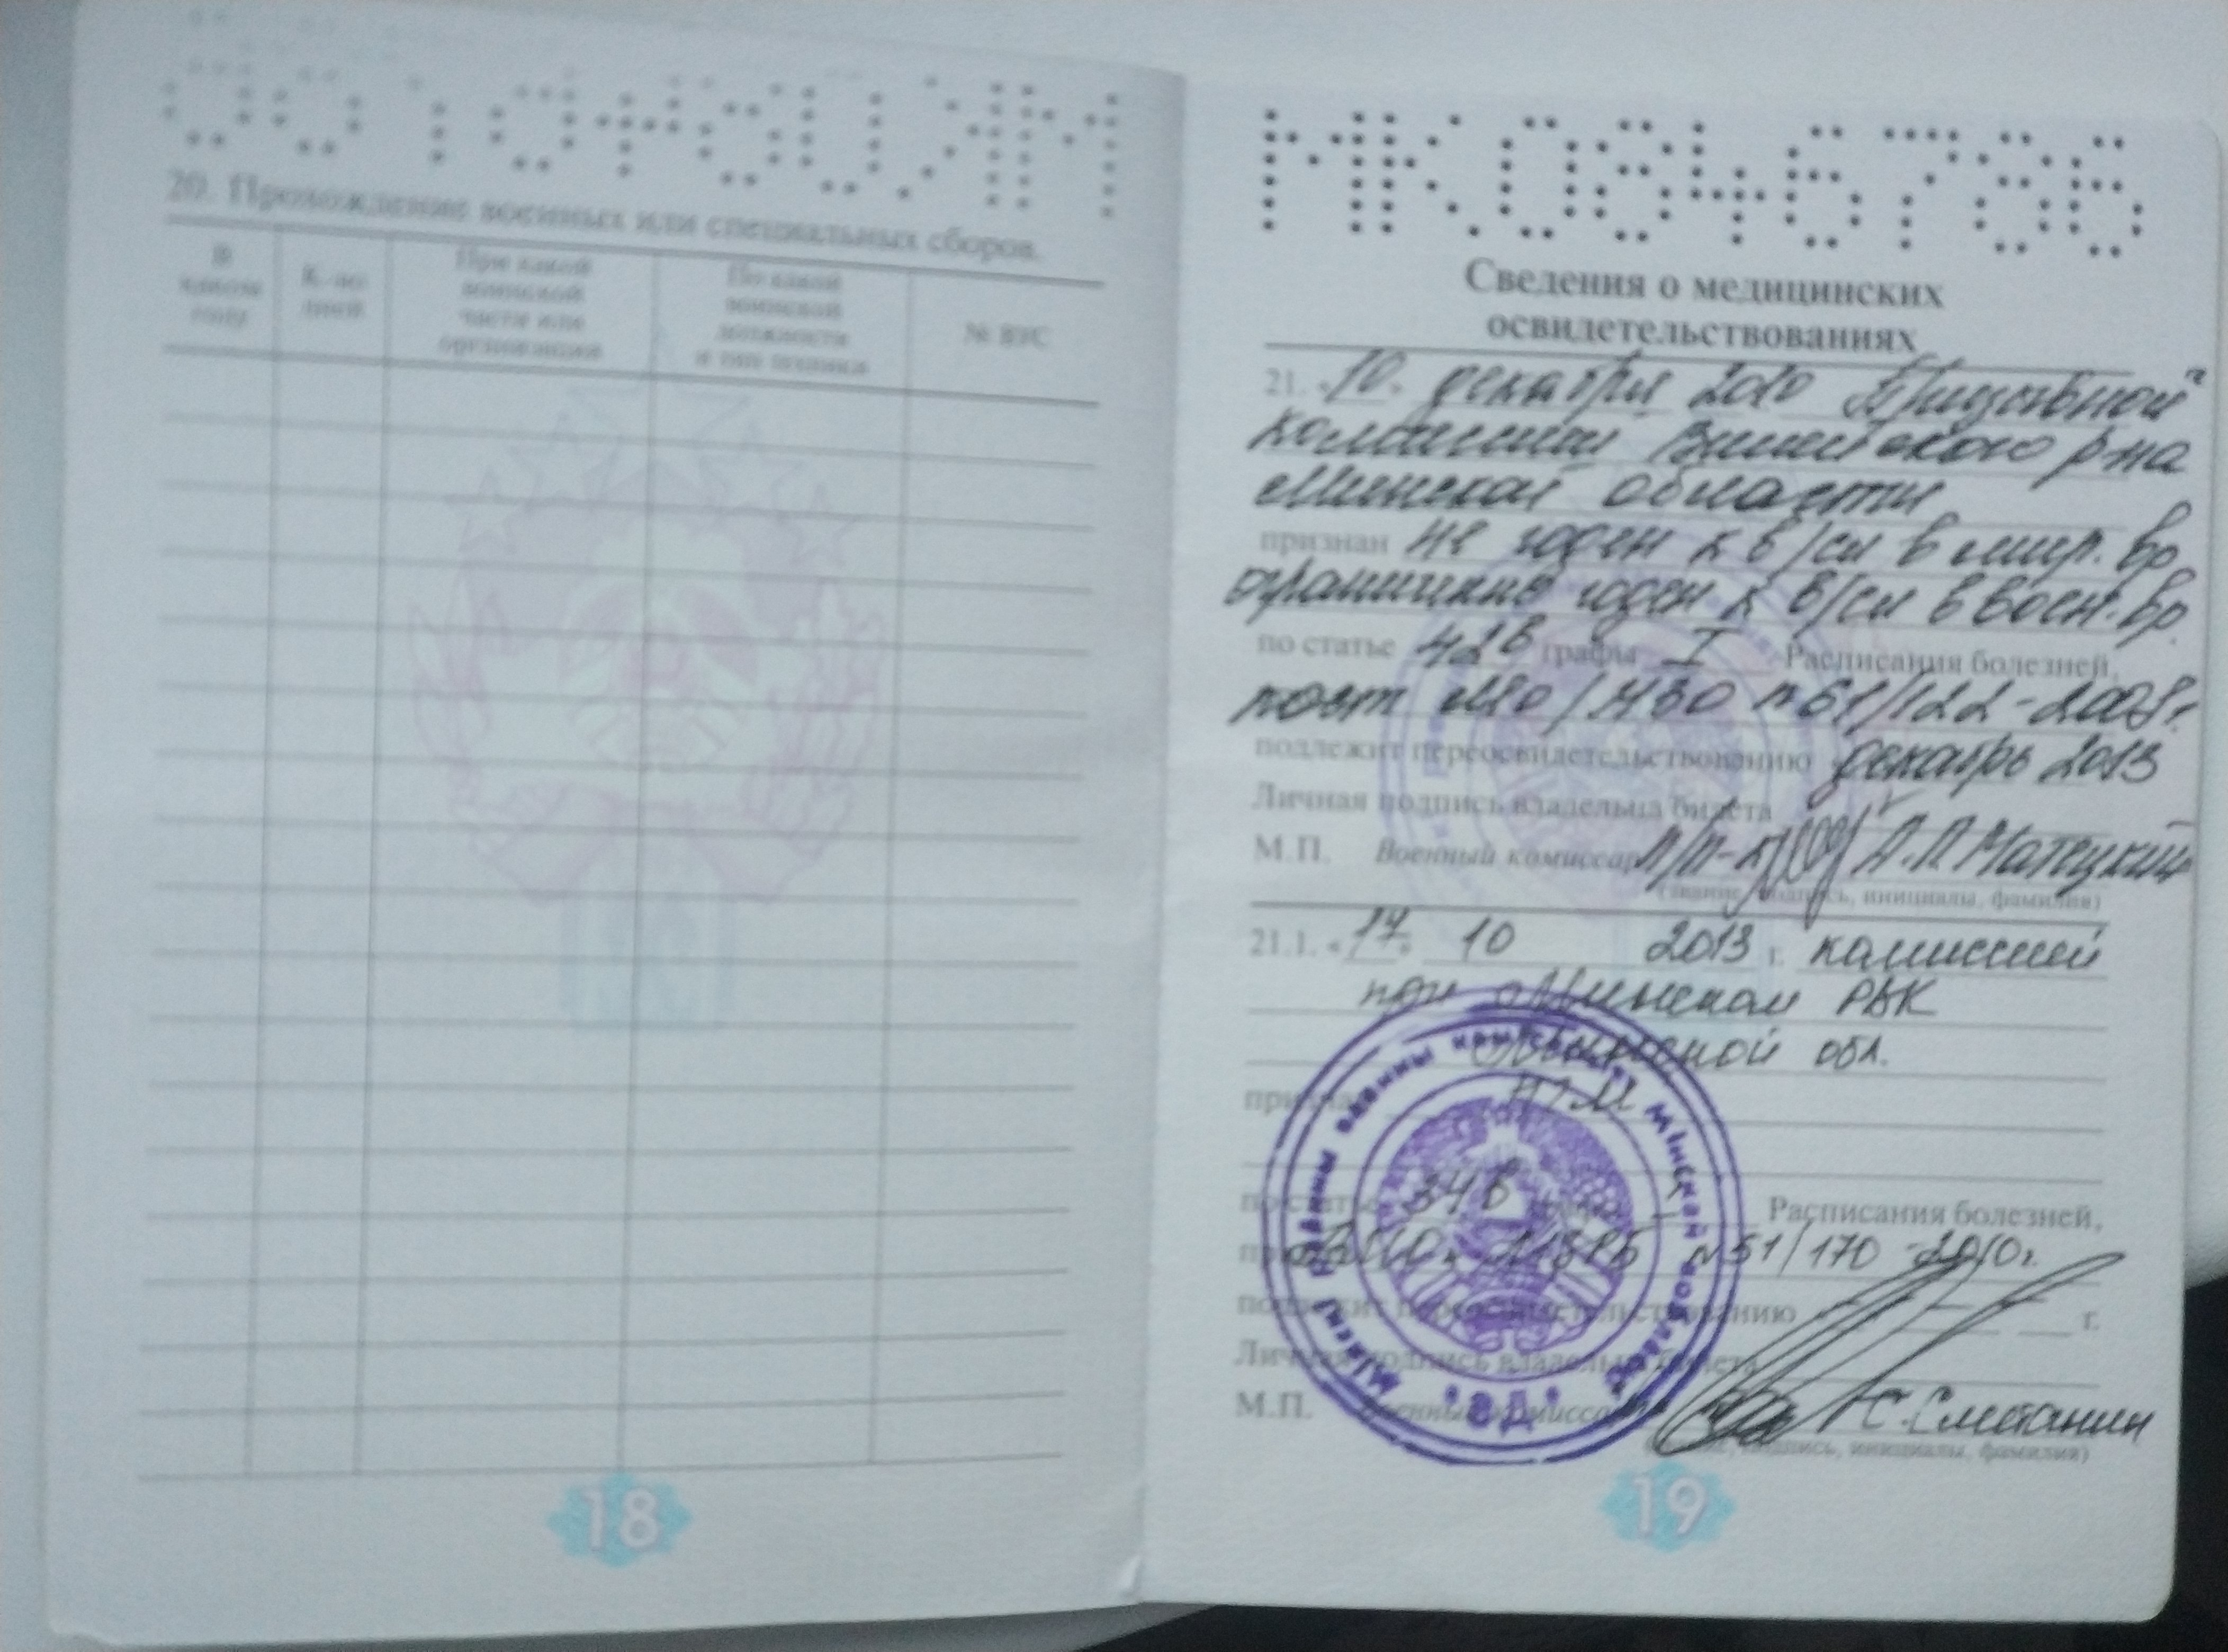 20. Прохождение военных или специальных сборов.
В каком году
К-во дней
При какой воинской части или организации
По какой воинской должности и тип техники
№ ВУС
18
МК
Сведения о медицинских
освидетельствованиях
21. «10» декабря 2010 Призывной
комиссией р-на
Минской области
признан не годен к в/сл в мир. вр
ограниченно годен к в/сл в воен. вр.
по статье 42в графы I Расписания болезней,
пост МО/МЗО №51/122-2008г.
подлежит переосвидетельствованию декабрь 2013
Личная подпись владельца билета
М.П. Военный комиссар п/п-к А.П. Матецкий
(звание, подпись, инициалы, фамилия)
21.1. «17» 10 2013 г. комиссией
при Минском РВК
Минской обл.
признан
по статье 34в Расписания болезней,
№51/170 2010г.
подлежит переосвидетельствованию г.
Личная подпись владельца билета
М.П. Военный комиссар С. Сметанин
(звание, подпись, инициалы, фамилия)
Мінскі раённы ваенны камісарыят Мінскай вобласці
* ВД *
19